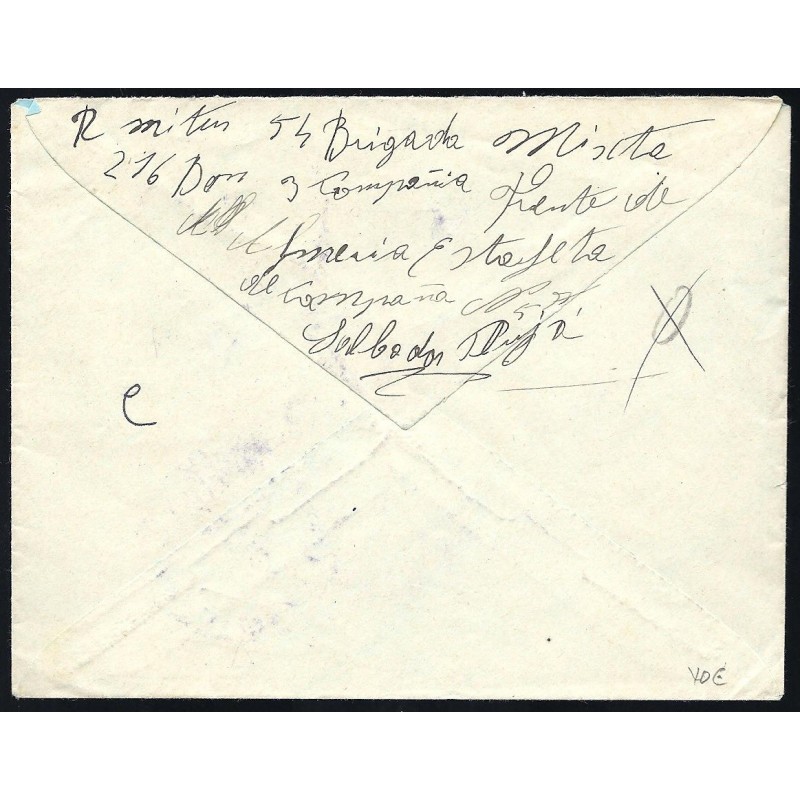 R miten 54 Brigada Mixta
216 Bon 3 Compañia frente de
Almeria Estafeta
de Campaña Nº
Salbador
e